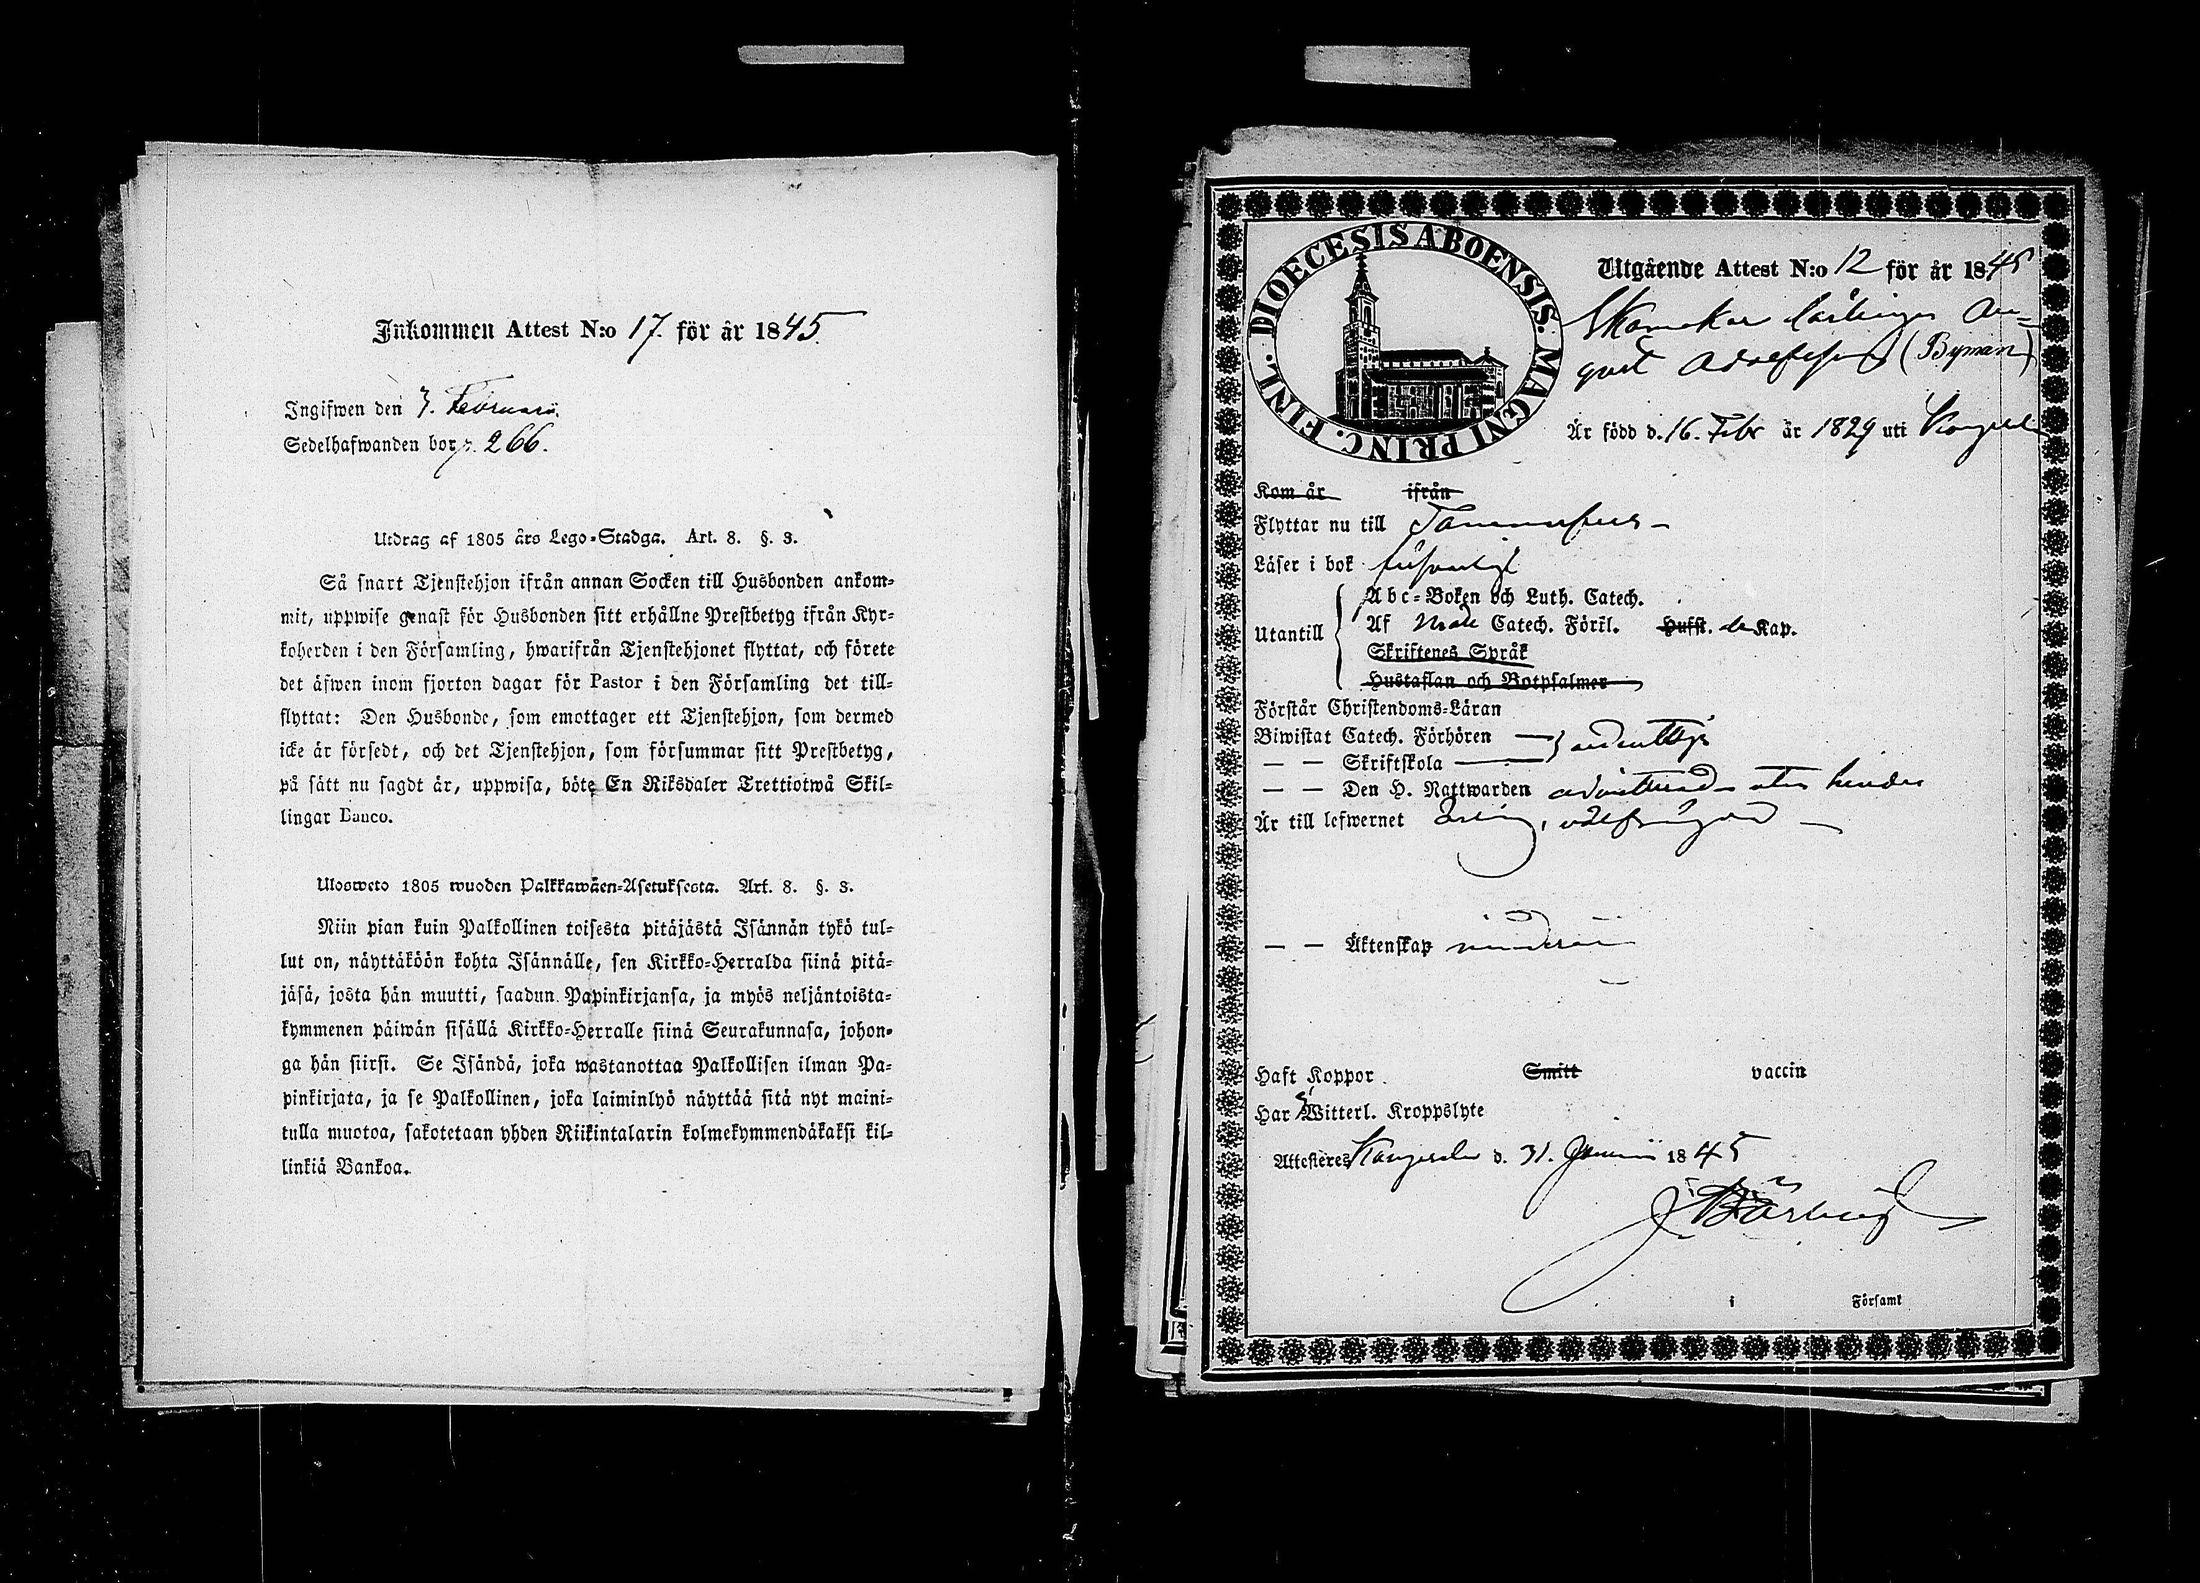 Inkommen Attest N:o 17. för år 1845.
Ingifwen den 3. Februarii
Sedelhafwanden bor p. 266.
Utdrag af 1805 års Lego-Stadga. Art. 8. §. 3.
Så snart Tjenstehjon ifrån annan Socken till Husbonden ankom-
mit, uppwise genast för Husbonden sitt erhållne Prestbetyg ifrån Kyr-
koherden i den Församling, hwarifrån Tjenstehjonet flyttat, och förete
det äfwen inom fjorton dagar för Pastor i den Församling det till-
flyttat: Den Husbonde, som emottager ett Tjenstehjon, som dermed
icke är försedt, och det Tjenstehjon, som försummar sitt Prestbetyg,
på sätt nu sagdt är, uppwisa, böte En Riksdaler Trettiotwå Skil-
lingar Banco.
Ulosweto 1805 wuoden Palkkawäen-Asetuksesta. Art. 8. §. 3.
Niin pian kuin Palkollinen toisesta pitäjästä Isännän tykö tul-
lut on, näyttäköön kohta Isännälle, sen Kirkko-Herralda siinä pitä-
jäsä, josta hän muutti, saadun Papinkirjansa, ja myös neljäntoista-
kymmenen päiwän sisällä Kirkko-Herralle siinä Seurakunnasa, johon-
ga hän siirsi. Se Isändä, joka wastanottaa Palkollisen ilman Pa-
pinkirjata, ja se Palkollinen, joka laiminlyö näyttää sitä nyt maini-
tulla muotoa, sakotetaan yhden Riikintalarin kolmekymmendäkaksi kil-
linkiä Bankoa.
DIOECESIS ABOENSIS. MAGNI PRINC. FINL.
Utgående Attest N:o 12 för år 1845
Skomakar lärlingen Au-
gust Adolfsson (Byman)
Är född d. 16. Febr år 1829 uti Kangasala
Kom år ifrån
Flyttar nu till Tammerfors
Läser i bok försvarligt
Utantill
Abc-Boken och Luth. Catech.
Af Catech. Förkl. Hufst. Kap.
Skriftenes Språk
Hustaflan och Botpsalmer
Förstår Christendoms-Läran
Biwistat Catech. Förhören
— — Skriftskola ordentligt
— — Den H. Nattwarden admitterad utan hinder
Är till lefwernet ärlig, välfrägdad
— — Äktenskap minderårig
Haft Koppor Smitt vaccin
Har Witterl. Kroppslyte
Attesteres Kangasala d. 31. Januarii 1845
i Församl